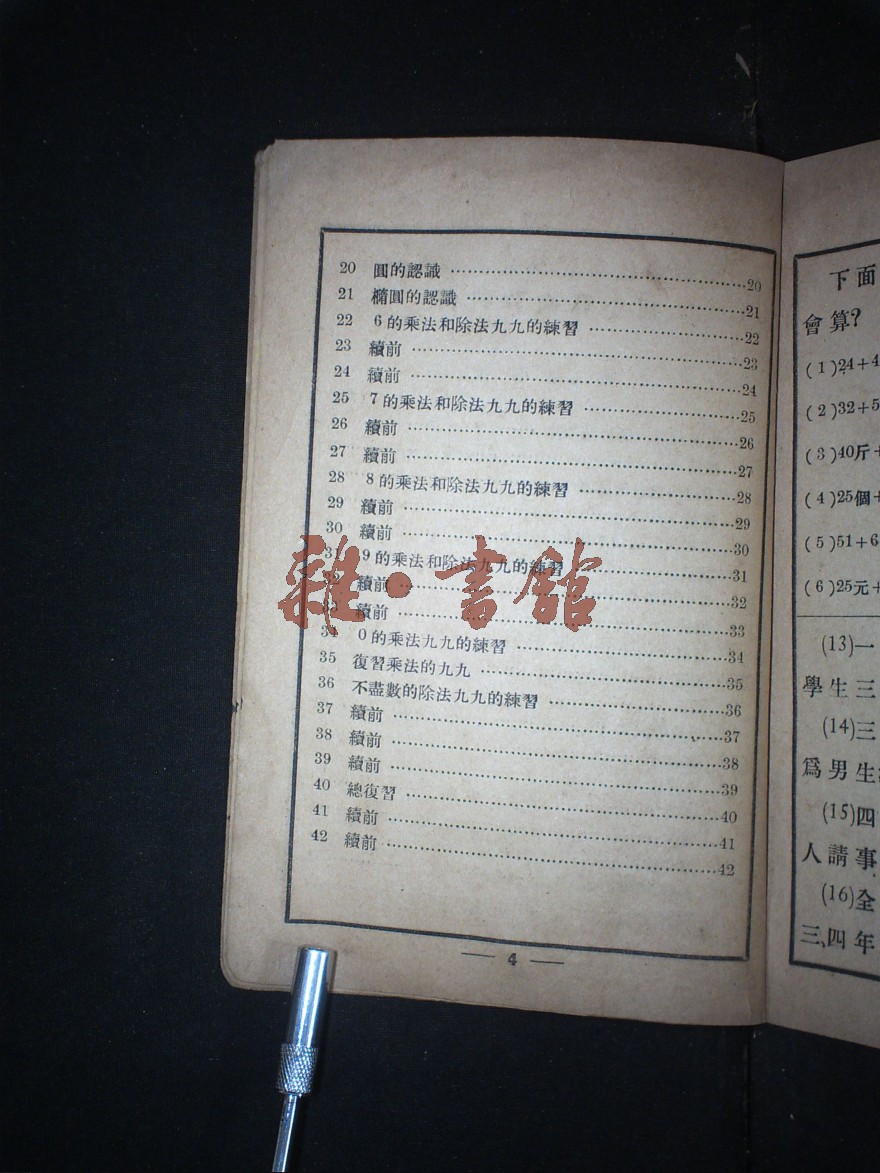 20 圓的認識 …… 20
21 橢圓的認識 …… 21
22 6的乘法和除法九九的練習 …… 22
23 續前 …… 23
24 續前 …… 24
25 7的乘法和除法九九的練習 …… 25
26 續前 …… 26
27 續前 …… 27
28 8的乘法和除法九九的練習 …… 28
29 續前 …… 29
30 續前 …… 30
31 9的乘法和除法九九的練習 …… 31
續前 …… 32
續前 …… 33
34 0的乘法九九的練習 …… 34
35 復習乘法的九九 …… 35
36 不盡數的除法九九的練習 …… 36
37 續前 …… 37
38 續前 …… 38
39 續前 …… 39
40 總復習 …… 40
41 續前 …… 41
42 續前 …… 42
— 4 —
雜·書館
下面
會算?
(1)24+4
(2)32+5
(3)40斤+
(4)25個+
(5)51+6
(6)25元+
(13)一
學生三
(14)三
爲男生
(15)四
人請事
(16)全
三、四年